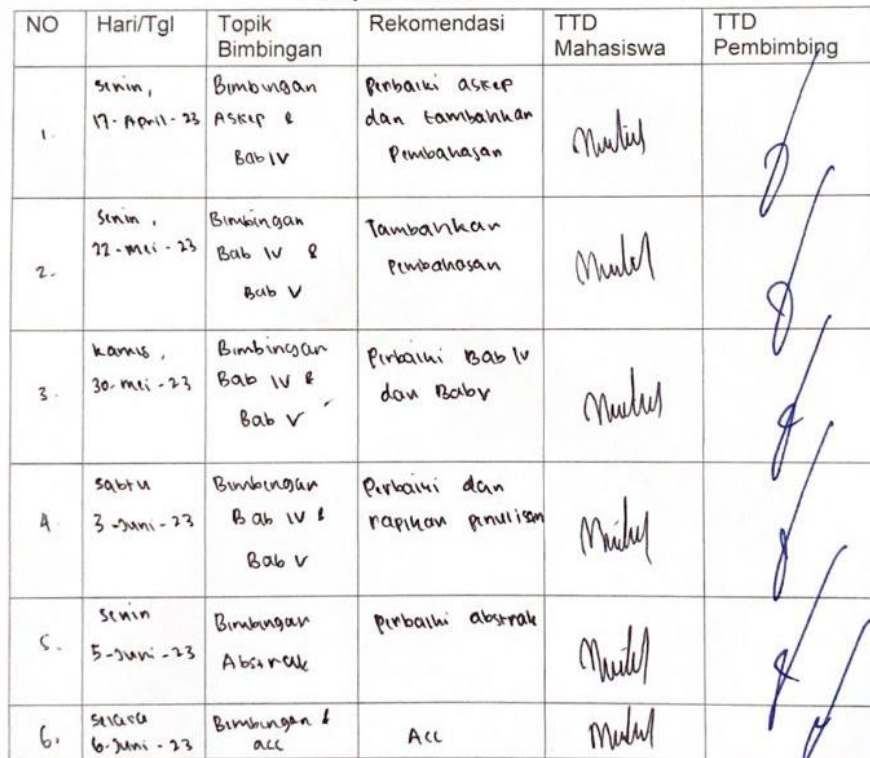 NO Hari/Tgl Topik Bimbingan Rekomendasi TTD Mahasiswa TTD Pembimbing
1. Senin,
17-April-23
Bimbingan
Askep &
Bab IV
Perbaiki askep
dan tambahkan
Pembahasan
2. Senin,
22-mei-23
Bimbingan
Bab IV &
Bab V
Tambahkan
Pembahasan
3. kamis,
30-mei-23
Bimbingan
Bab IV &
Bab V
Perbaiki Bab IV
dan Bab V
4. Sabtu
3-Juni-23
Bimbingan
Bab IV &
Bab V
Perbaiki dan
rapikan penulisan
5. Senin
5-Juni-23
Bimbingan
Abstrak
Perbaiki abstrak
6. Selasa
6-Juni-23
Bimbingan &
acc
Acc